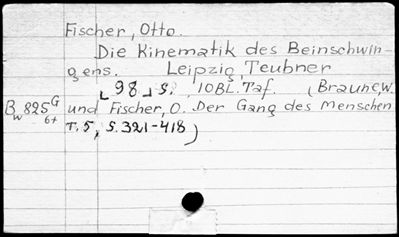 Fischer, Otto.
Die Kinematik des Beinschwin-
gens. Leipzig, Teubner
⌊98⌋ S. 10 BL. Taf. (Braune, W.
Bw 825 G 6+ und Fischer, O. Der Gang des Menschen
T. 5, S. 321-418)